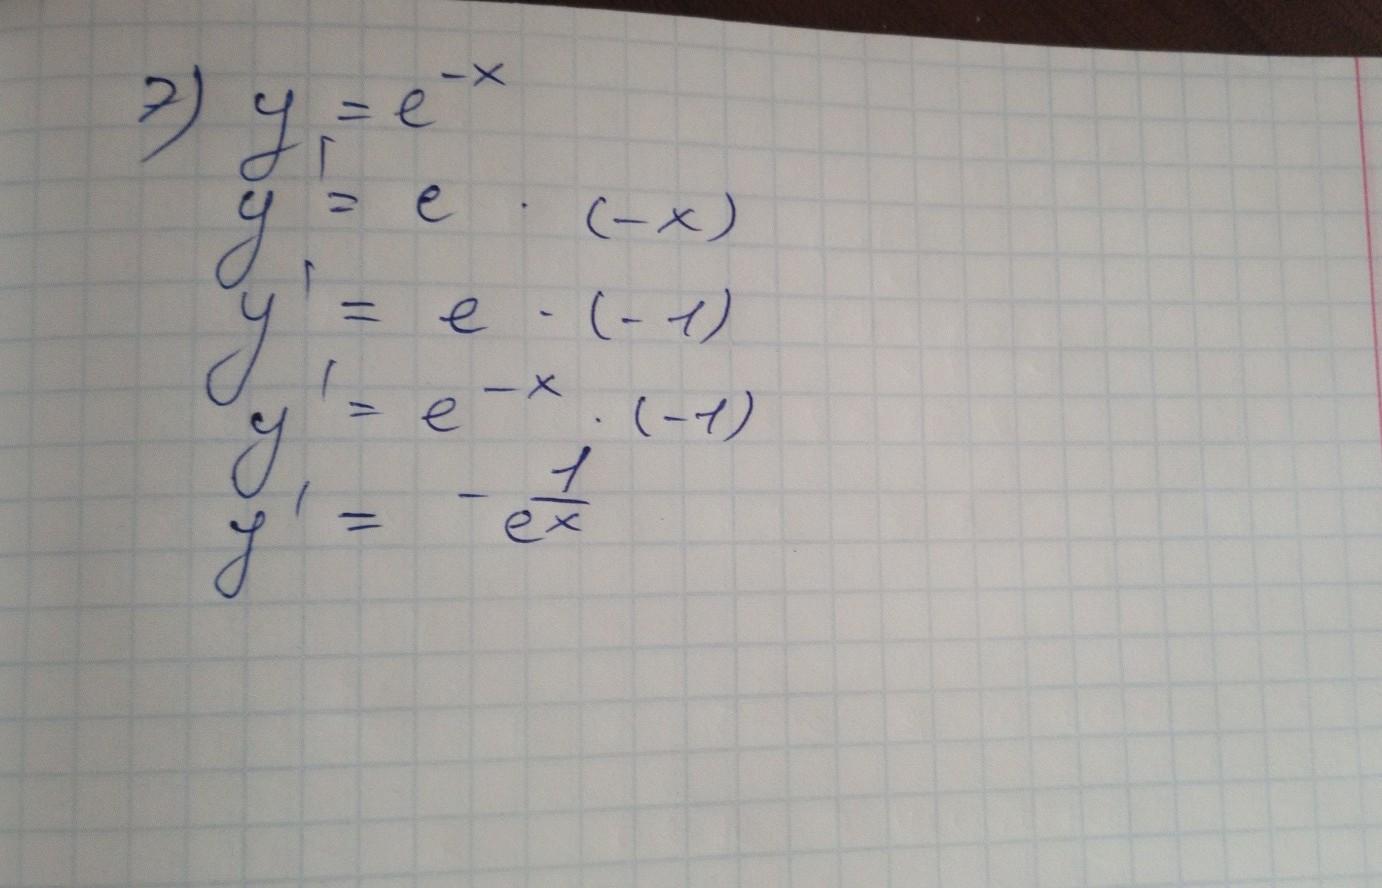 7) y = e^{-x}
y' = e · (-x)
y' = e · (-1)
y' = e^{-x} · (-1)
y' = - \frac{1}{e^x}